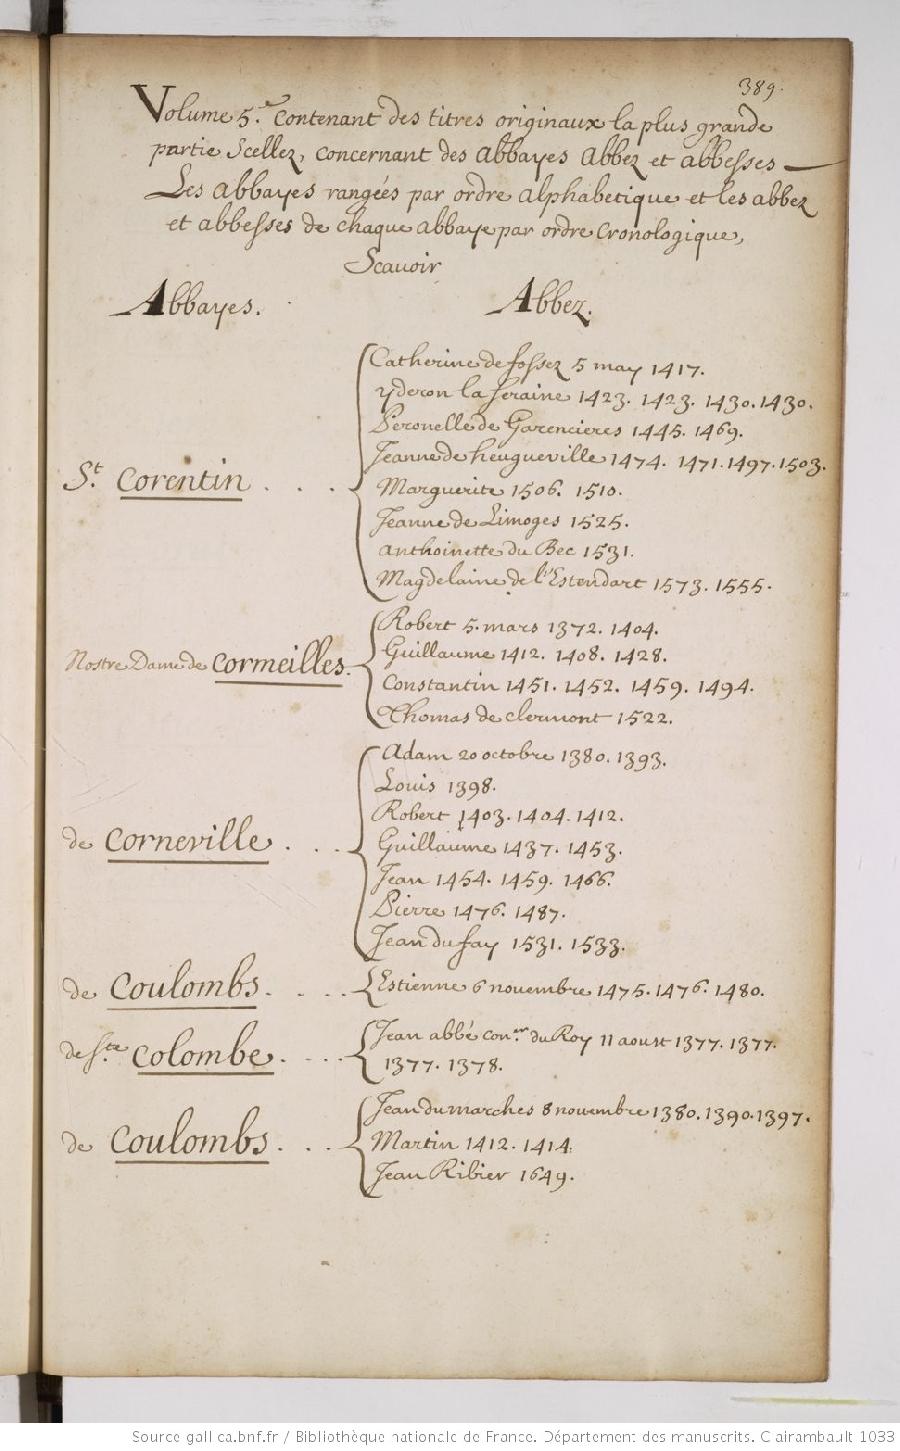 389.
Volume 5.e Contenant des titres originaux la plus grande
partie Scellez, concernant des abbayes abbez et abbesses —
Les abbayes rangées par ordre alphabetique et les abbez
et abbesses de chaque abbaye par ordre Cronologique,
Scauoir
Abbayes. Abbez.
Catherine de fossez 5 may 1417.
yderon la seraine 1423. 1423. 1430. 1430.
Peronelle de Garencieres 1445. 1469.
Jeanne de heugueville 1474. 1471. 1497. 1503.
St. Corentin . . . Marguerite 1506. 1510.
Jeanne de Limoges 1525.
anthoinette du Bec 1531.
Magdelaine de l'Estendart 1573. 1555.
Robert 5. mars 1372. 1404.
Guillaume 1412. 1408. 1428.
Nostre Dame de Cormeilles. Constantin 1451. 1452. 1459. 1494.
Thomas de clermont 1522.
Adam 20 octobre 1380. 1393.
Louis 1398.
Robert 1403. 1404. 1412.
de Corneville . . . Guillaume 1437. 1453.
Jean 1454. 1459. 1466.
Pierre 1476. 1487.
Jean du fay 1531. 1533.
de Coulombs . . . . Estienne 6 novembre 1475. 1476. 1480.
de Ste Colombe . . . . Jean abbé con.er du Roy 11 aoust 1377. 1377.
1377. 1378.
Jean du marches 8 novembre 1380. 1390. 1397.
de Coulombs . . . Martin 1412. 1414.
Jean Ribier 1649.
Source gallica.bnf.fr / Bibliothèque nationale de France. Département des manuscrits. Clairambault 1033